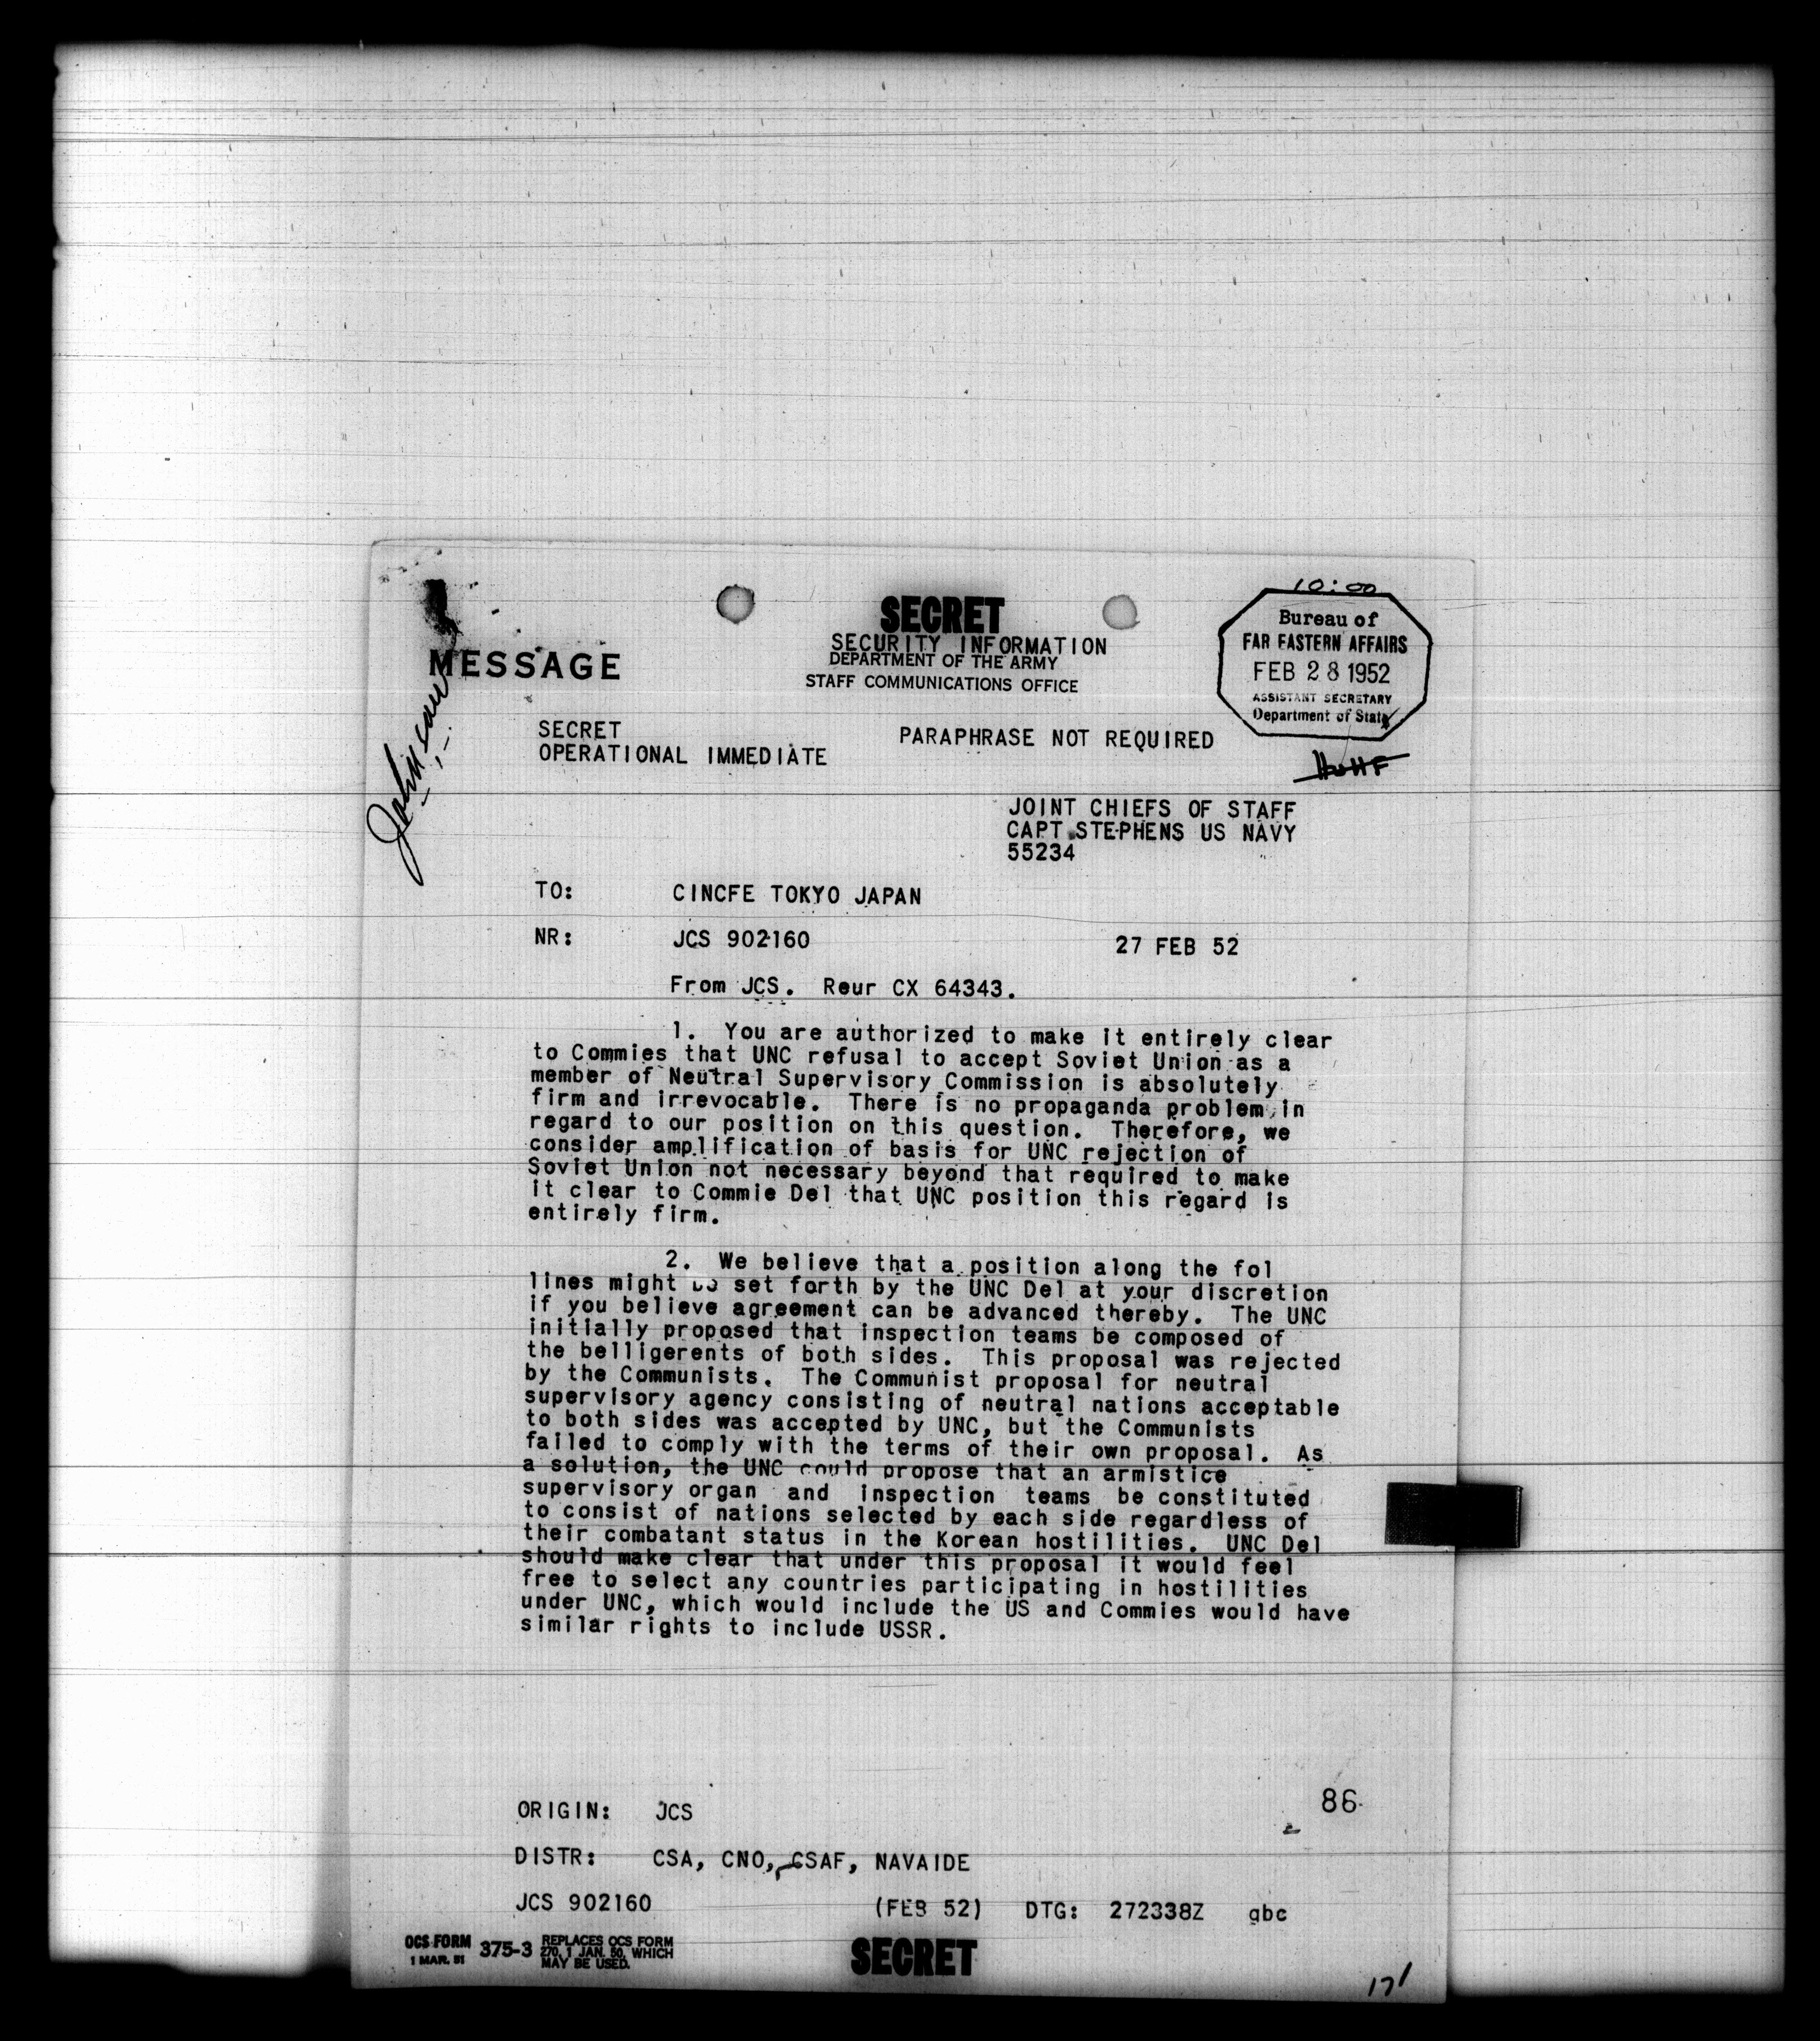 10:00
SECRET
SECURITY INFORMATION
DEPARTMENT OF THE ARMY
STAFF COMMUNICATIONS OFFICE
MESSAGE
Bureau of
FAR EASTERN AFFAIRS
FEB 28 1952
ASSISTANT SECRETARY
Department of State
SECRET
OPERATIONAL IMMEDIATE
PARAPHRASE NOT REQUIRED
JOINT CHIEFS OF STAFF
CAPT STEPHENS US NAVY
55234
TO: CINCFE TOKYO JAPAN
NR: JCS 902160 27 FEB 52
From JCS. Reur CX 64343.
1. You are authorized to make it entirely clear
to Commies that UNC refusal to accept Soviet Union as a
member of Neutral Supervisory Commission is absolutely
firm and irrevocable. There is no propaganda problem in
regard to our position on this question. Therefore, we
consider amplification of basis for UNC rejection of
Soviet Union not necessary beyond that required to make
it clear to Commie Del that UNC position this regard is
entirely firm.
2. We believe that a position along the fol
lines might be set forth by the UNC Del at your discretion
if you believe agreement can be advanced thereby. The UNC
initially proposed that inspection teams be composed of
the belligerents of both sides. This proposal was rejected
by the Communists. The Communist proposal for neutral
supervisory agency consisting of neutral nations acceptable
to both sides was accepted by UNC, but the Communists
failed to comply with the terms of their own proposal. As
a solution, the UNC could propose that an armistice
supervisory organ and inspection teams be constituted
to consist of nations selected by each side regardless of
their combatant status in the Korean hostilities. UNC Del
should make clear that under this proposal it would feel
free to select any countries participating in hostilities
under UNC, which would include the US and Commies would have
similar rights to include USSR.
86
ORIGIN: JCS
DISTR: CSA, CNO, CSAF, NAVAIDE
JCS 902160 (FEB 52) DTG: 272338Z gbc
OCS FORM 375-3 REPLACES OCS FORM
1 MAR. 51 270, 1 JAN. 50, WHICH
MAY BE USED.
SECRET
171